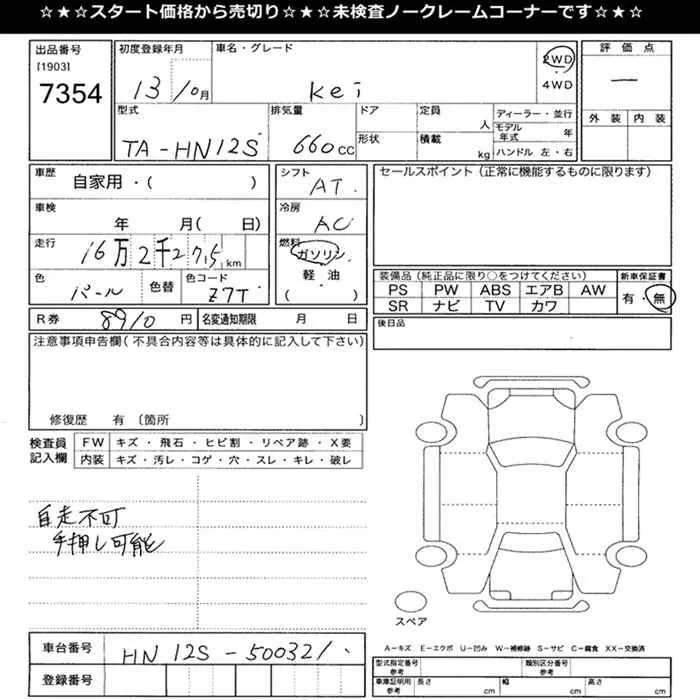 ☆★☆★スタート価格から売切り☆★☆★未検査ノークレームコーナーです☆★☆
出品番号
[1903]
7354
初度登録年月
13/10月
車名・グレード
Kei
2WD
・
4WD
評価点
―
外装 内装
型式
TA-HN12S
排気量
660cc
ドア
形状
定員
人
積載
kg
ディーラー・並行
モデル年式 年
ハンドル 左・右
車歴
自家用・( )
シフト
AT.
セールスポイント(正常に機能するものに限ります)
車検
年 月( 日)
冷房
AC
走行
16万2千275km
燃料
ガソリン
軽油
( )
色
パール
色替
色コード
Z7T
装備品(純正品に限り○をつけてください)
PS PW ABS エアB AW
SR ナビ TV カワ
新車保証書
有・無
R券
8910円
名変通知期限 月 日
後日品
注意事項申告欄(不具合内容等は具体的に記入して下さい)
修復歴 有〔箇所 〕
検査員
記入欄
FW キズ・飛石・ヒビ割・リペア跡・X要
内装 キズ・汚レ・コゲ・穴・スレ・キレ・破レ
自走不可
手押し可能
スペア
A-キズ E-エクボ U-凹み W-補修跡 S-サビ C-腐食 XX-交換済
車台番号
HN12S-500321
登録番号
型式指定番号
参考
類別区分番号
参考
車庫証明用
参考
長さ cm
幅 cm
高さ cm